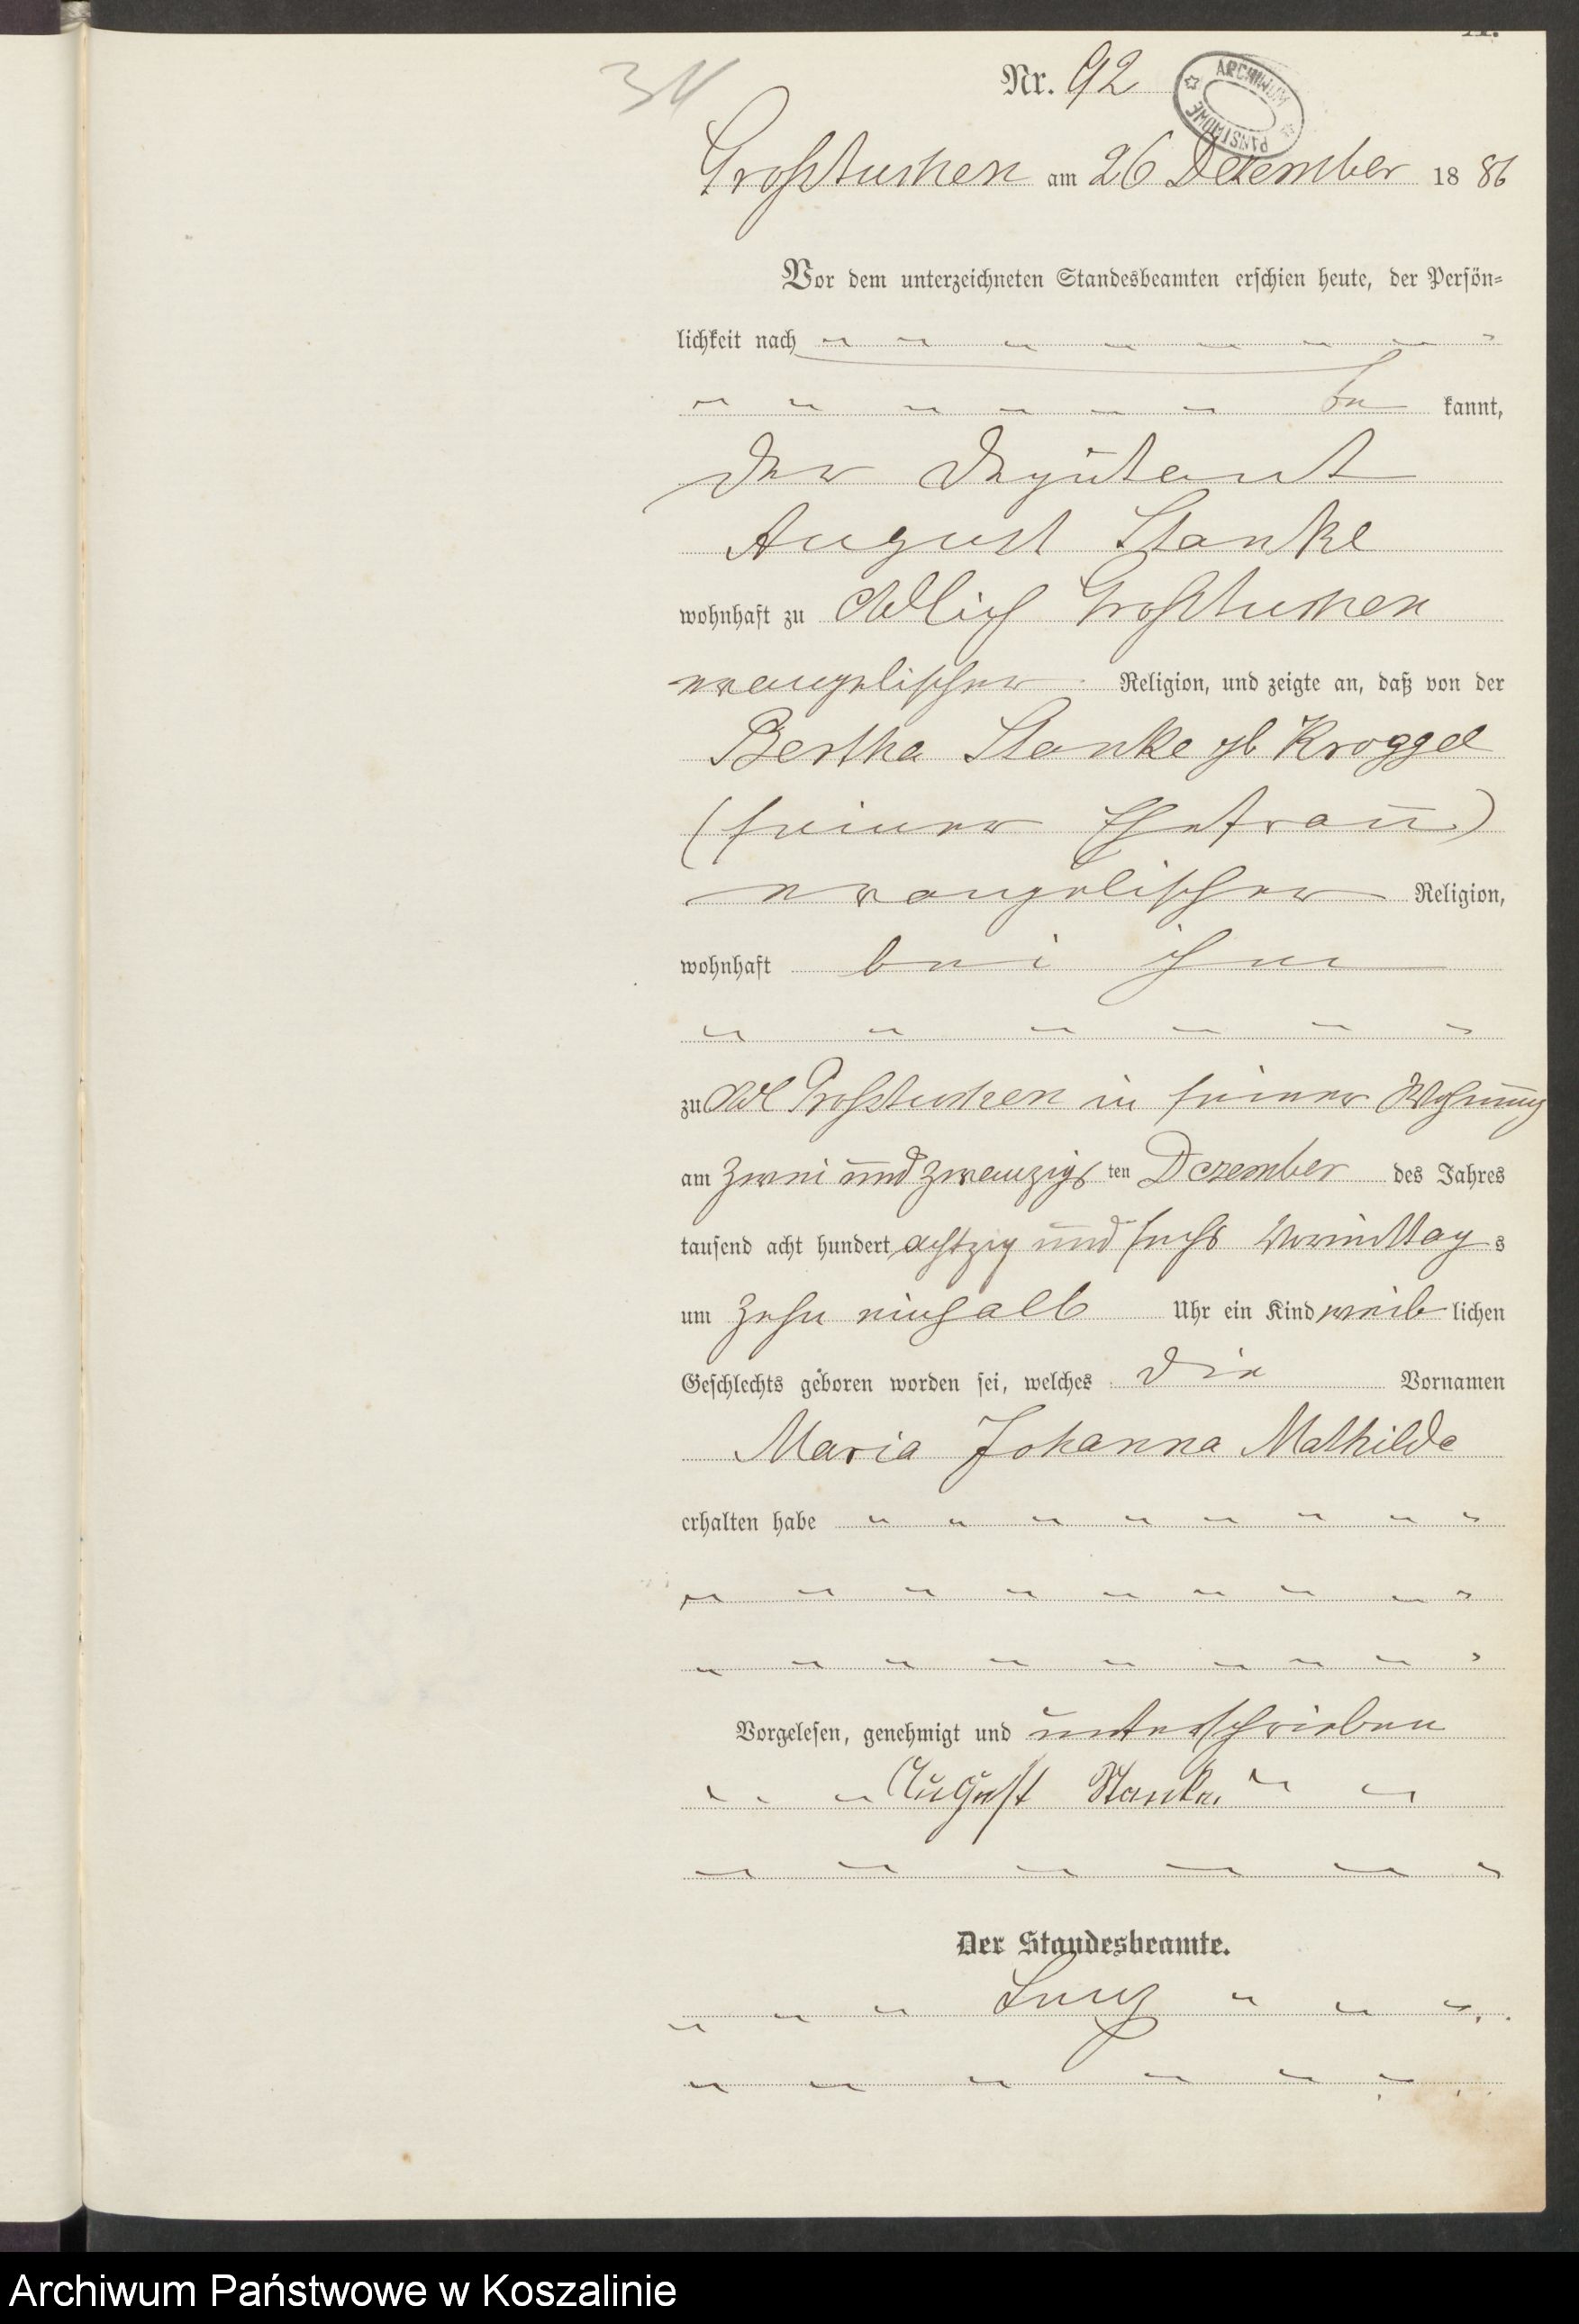 A.
34
Nr. 92
ARCHIWUM PAŃSTWOWE
Großtuchen am 26 Dezember 1886
Vor dem unterzeichneten Standesbeamten erschien heute, der Persön-
lichkeit nach
be kannt,
der Deputant
August Stanke
wohnhaft zu Adlich Großtuchen
evangelischer Religion, und zeigte an, daß von der
Bertha Stanke gb Kroggel
(seiner Ehefrau)
evangelischer Religion,
wohnhaft bei ihm
zu Adl Großtuchen in seiner Wohnung
am zwei und zwanzigs ten Dezember des Jahres
tausend acht hundert achtzig und sechs Vormittag s
um zehn einhalb Uhr ein Kind weib lichen
Geschlechts geboren worden sei, welches die Vornamen
Maria Johanna Mathilde
erhalten habe
Vorgelesen, genehmigt und unterschrieben
August Stanke
Der Standesbeamte.
Archiwum Państwowe w Koszalinie